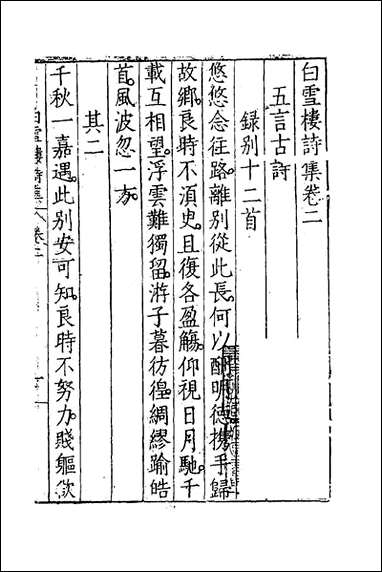 白雪樓詩集卷二
五言古詩
録别十二首
悠悠念往路。離别從此長。何以酬明德携手歸
故鄉。良時不湏史。且復各盈觴。仰視日月馳。千
載互相望。浮雲難獨留。游子暮彷徨。綢繆踰皓
首。風波忽一方。
其二
千秋一嘉遇。此别安可知。良時不努力。賤軀欲
白雪樓詩集 卷二